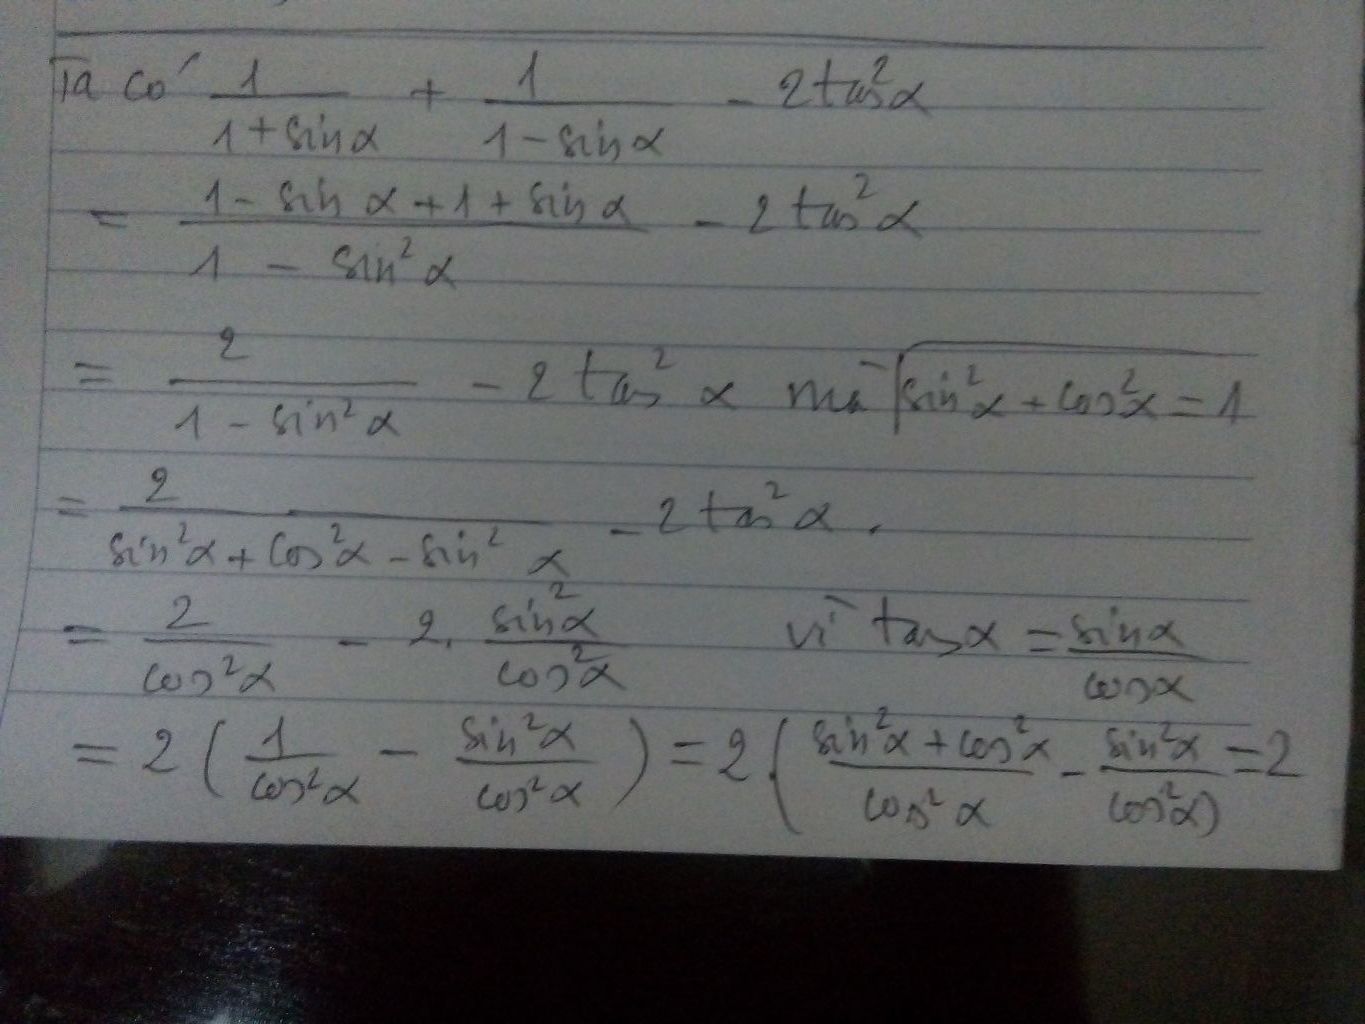 Ta có 1/(1+sinα) + 1/(1-sinα) - 2tan²α
= (1 - sin α + 1 + sin α)/(1 - sin²α) - 2 tan²α
= 2/(1 - sin²α) - 2 tan²α mà sin²α + cos²α = 1
= 2/(sin²α + cos²α - sin²α) - 2 tan²α.
= 2/cos²α - 2. sin²α/cos²α vì tanα = sinα/cosα
= 2(1/cos²α - sin²α/cos²α) = 2(sin²α + cos²α/cos²α - sin²α/cos²α) = 2